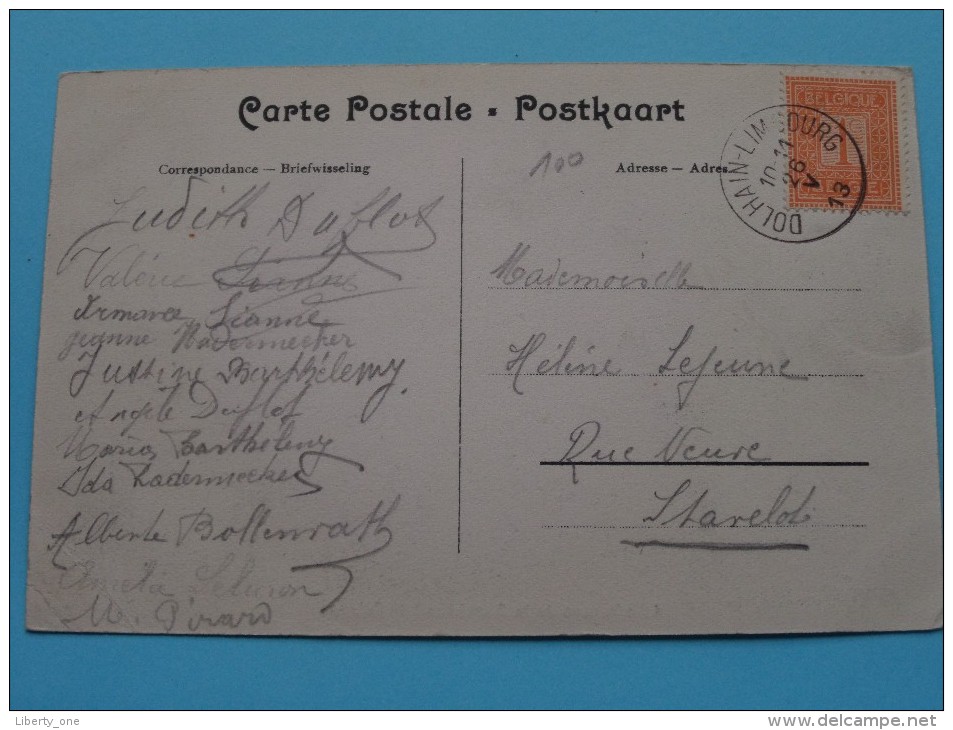 Carte Postale - Postkaart
Correspondance — Briefwisseling
Adresse — Adres
100
BELGIQUE
1
DOLHAIN-LIMBOURG
10-11
26
V
13
Judith Duflot
Valérie Lianne
Irmance Lianne
Jeanne Radermecker
Justine Barthélemy
Angèle Duflot
Maria Barthélemy
Ida Radermecker
Alberte Bollenrath
M. Pirard
Mademoiselle
Hélène Lejeune
Rue Neuve
Stavelot
Liberty_one
www.delcampe.net